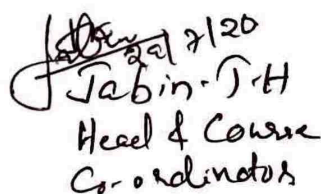 29/7/20
Jabin.T.H
Head & Course
Co-ordinator